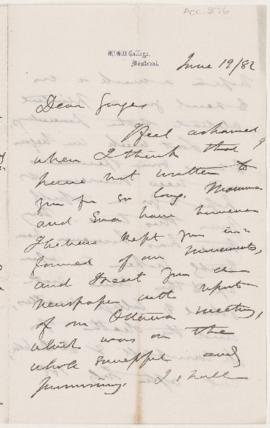 ACC. 876
McGill College,
Montreal
June 19/82
Dear George
I feel ashamed
when I think that I
have not written to
you for so long. Mamma
and Eva have however
I believe kept you in-
formed of our movements,
and I sent you a
newspaper with report
of our Ottawa meeting,
which was on the
whole successful and
promising. I shall